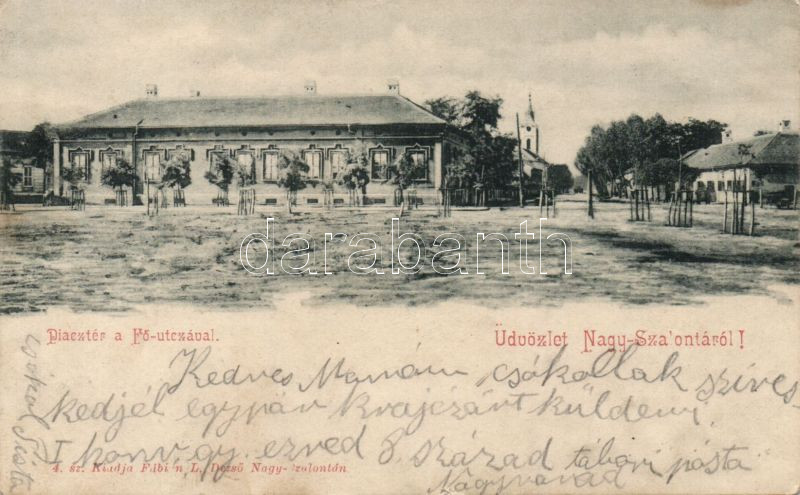 darabanth
Piacztér a Fő-utczával.
Üdvözlet Nagy-Sza'ontáról!
Kedves Mamám csókollak szíves
kedjél egypár krajczárt küldeni
I honv. gy. ezred 8. század tábori posta
Nagyvárad
csókol Pista
4. sz. Kiadja Fábi n L. Dezső Nagy- zalontán